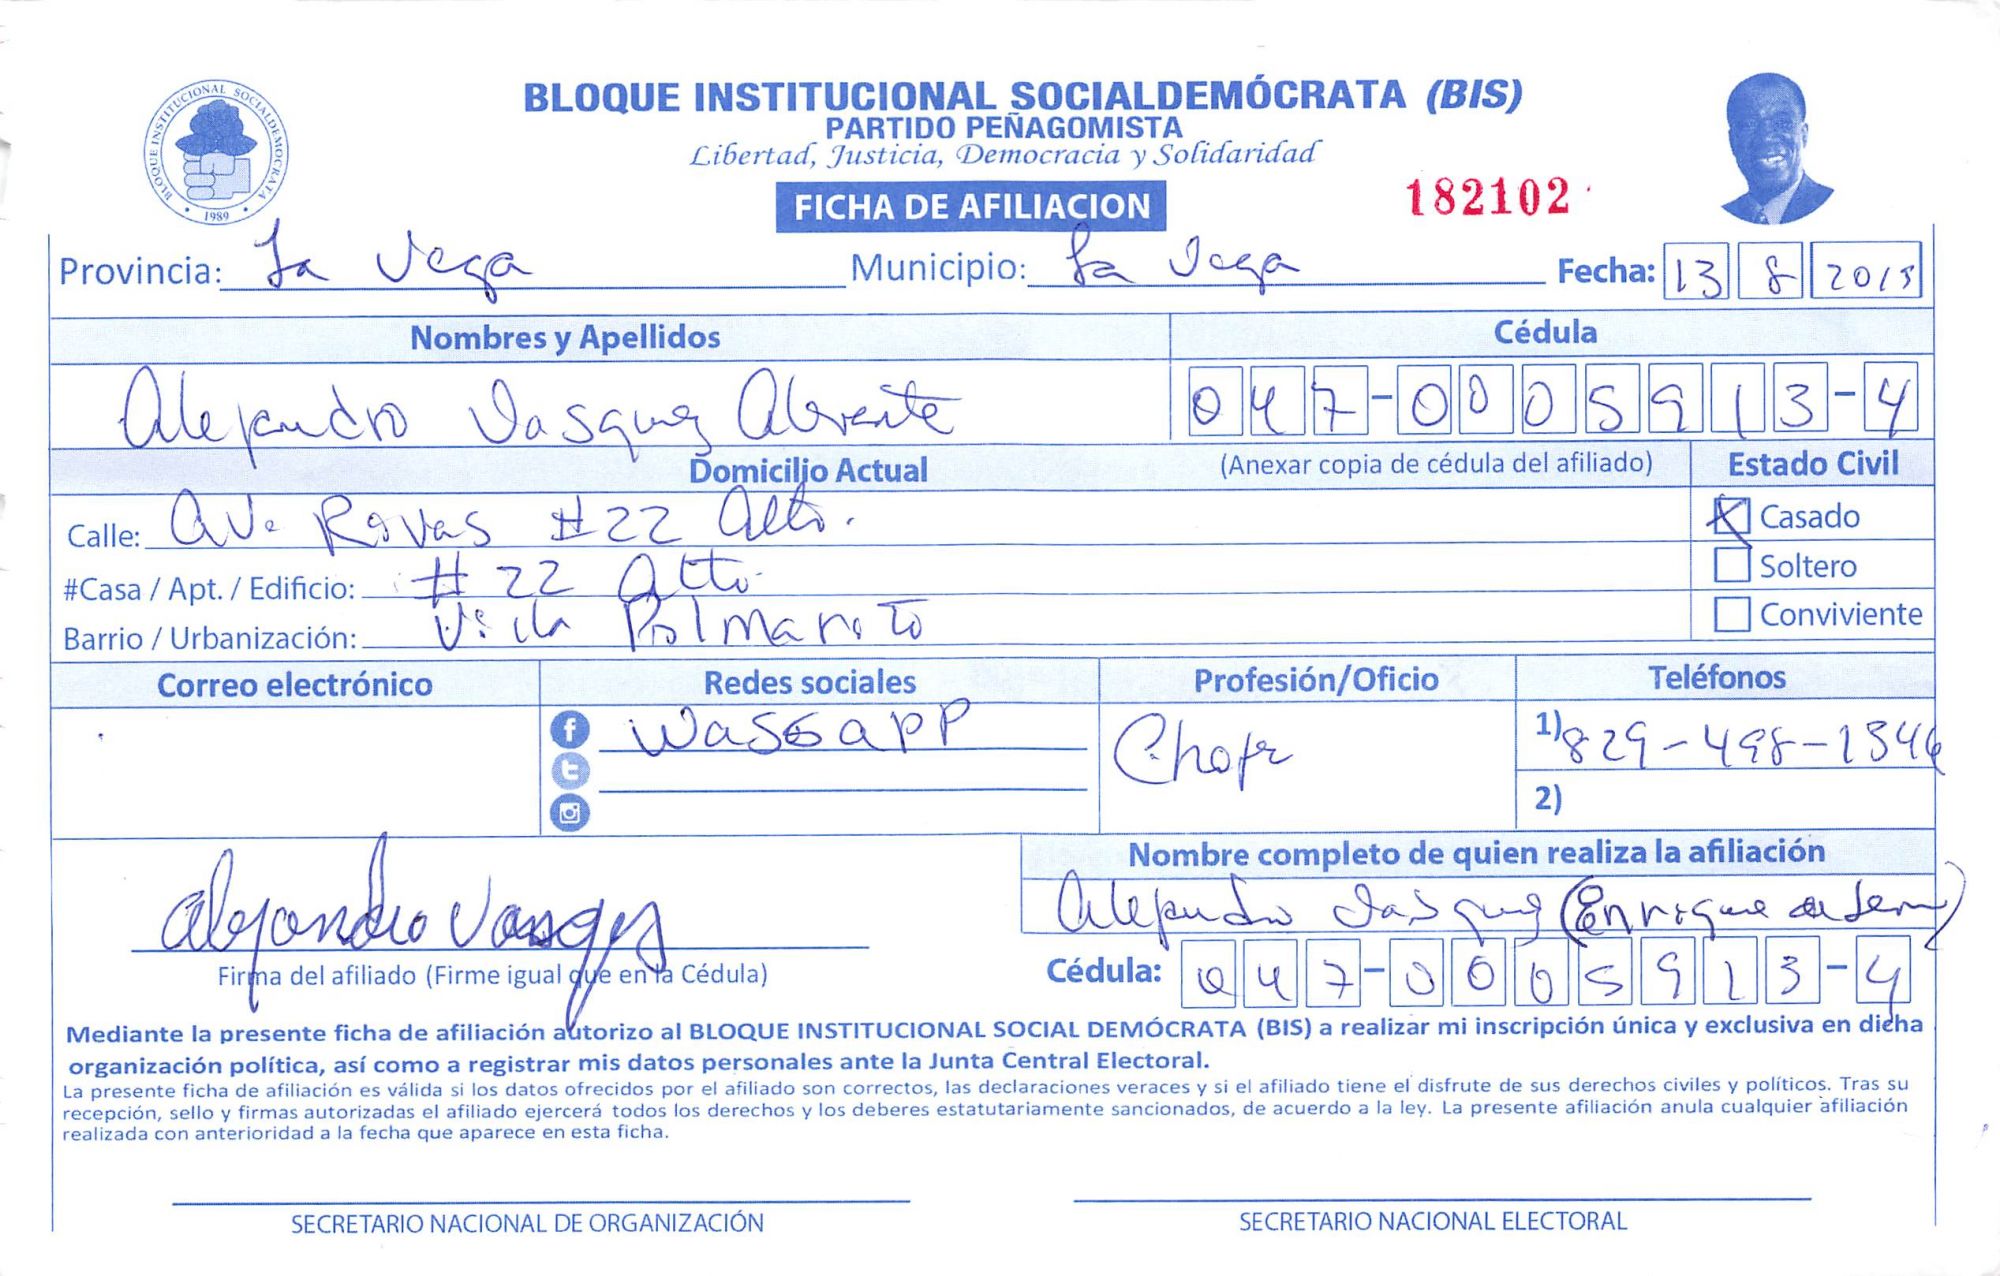 BLOQUE INSTITUCIONAL SOCIALDEMÓCRATA (BIS)
PARTIDO PEÑAGOMISTA
Libertad, Justicia, Democracia y Solidaridad
BLOQUE INSTITUCIONAL SOCIALDEMOCRATA
1989
FICHA DE AFILIACION
182102
Provincia: La Vega Municipio: La Vega Fecha: 13 8 2015
Nombres y Apellidos Cédula
Alejandro Vasquez Abreute 047-0005913-4
Domicilio Actual (Anexar copia de cédula del afiliado) Estado Civil
Calle: Ave Rivas #22 Alto. X Casado
#Casa / Apt. / Edificio: #22 Alto. Soltero
Barrio / Urbanización: Villa Palmarito Conviviente
Correo electrónico Redes sociales Profesión/Oficio Teléfonos
Wassapp Chofe 1) 829-498-1346
2)
Nombre completo de quien realiza la afiliación
Alejandro Vasquez (Enrique
Alejandro Vasquez
Firma del afiliado (Firme igual que en la Cédula) Cédula: 047-0005913-4
Mediante la presente ficha de afiliación autorizo al BLOQUE INSTITUCIONAL SOCIAL DEMÓCRATA (BIS) a realizar mi inscripción única y exclusiva en dicha
organización política, así como a registrar mis datos personales ante la Junta Central Electoral.
La presente ficha de afiliación es válida si los datos ofrecidos por el afiliado son correctos, las declaraciones veraces y si el afiliado tiene el disfrute de sus derechos civiles y políticos. Tras su
recepción, sello y firmas autorizadas el afiliado ejercerá todos los derechos y los deberes estatutariamente sancionados, de acuerdo a la ley. La presente afiliación anula cualquier afiliación
realizada con anterioridad a la fecha que aparece en esta ficha.
SECRETARIO NACIONAL DE ORGANIZACIÓN SECRETARIO NACIONAL ELECTORAL